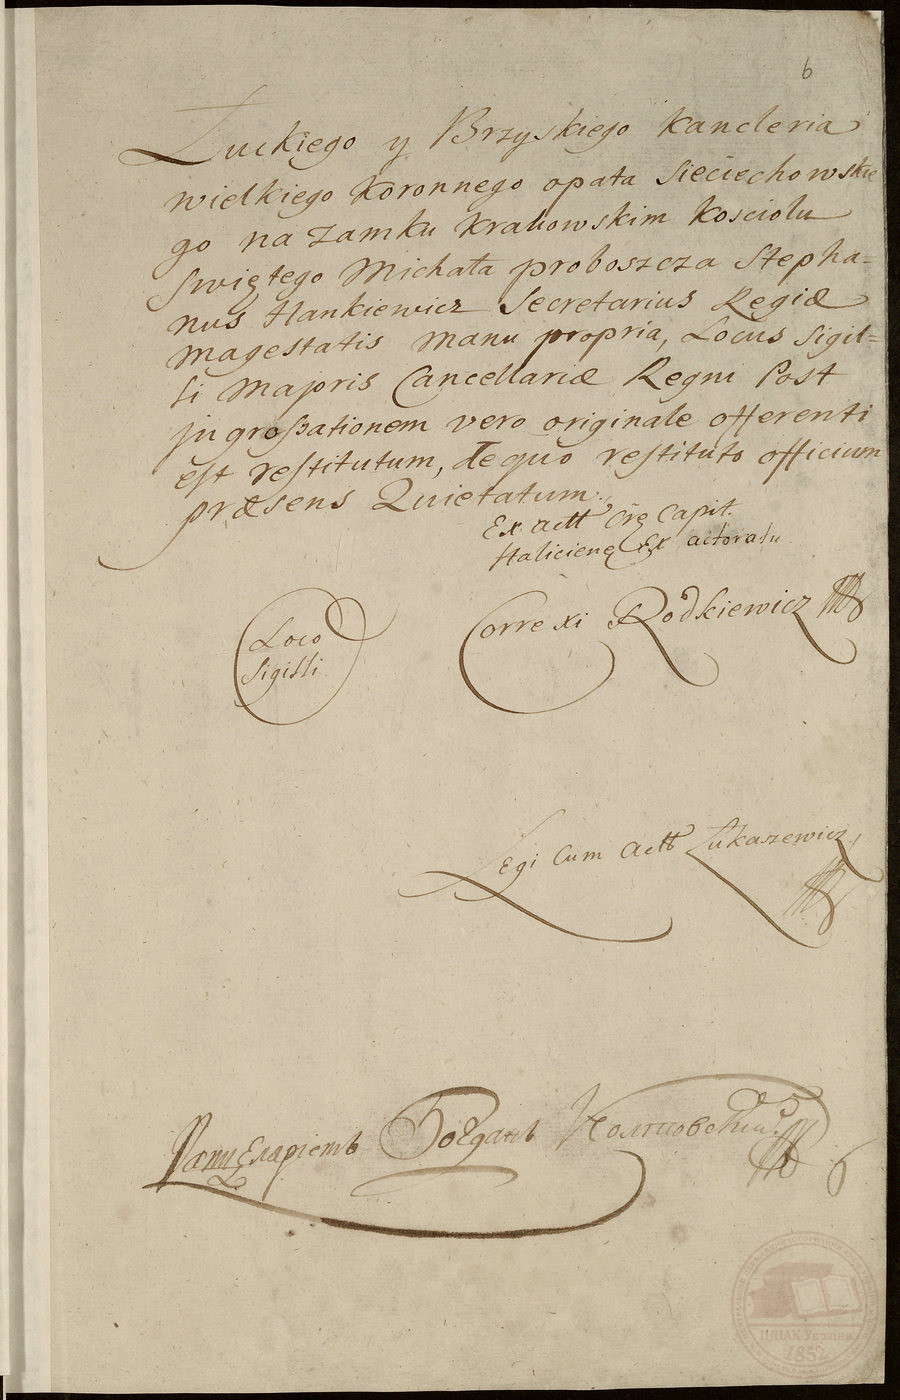 6
Łuckiego y Brzyskiego Kancleria
wielkiego Koronnego opata Sieciechowskie
go na zamku Krakowskim Kosciołu
swiętego Michała proboszcza Stepha=
nus Hankiewicz Secretarius Regiæ
Magestatis Manu propria, Locus Sigil=
li Majoris Cancellariæ Regni Post
jngroßationem vero originale offerenti
est restitutum, de quo restituto officium
præsens Quietatum.
Ex actt Crę Capit.
Halicienę Ex actoratu
Loco
Sigilli
Correxi Rodkiewicz
Legi Cum actt Łukaszewicz
Канцеляристъ Богданъ
ЦДІАК України
1852